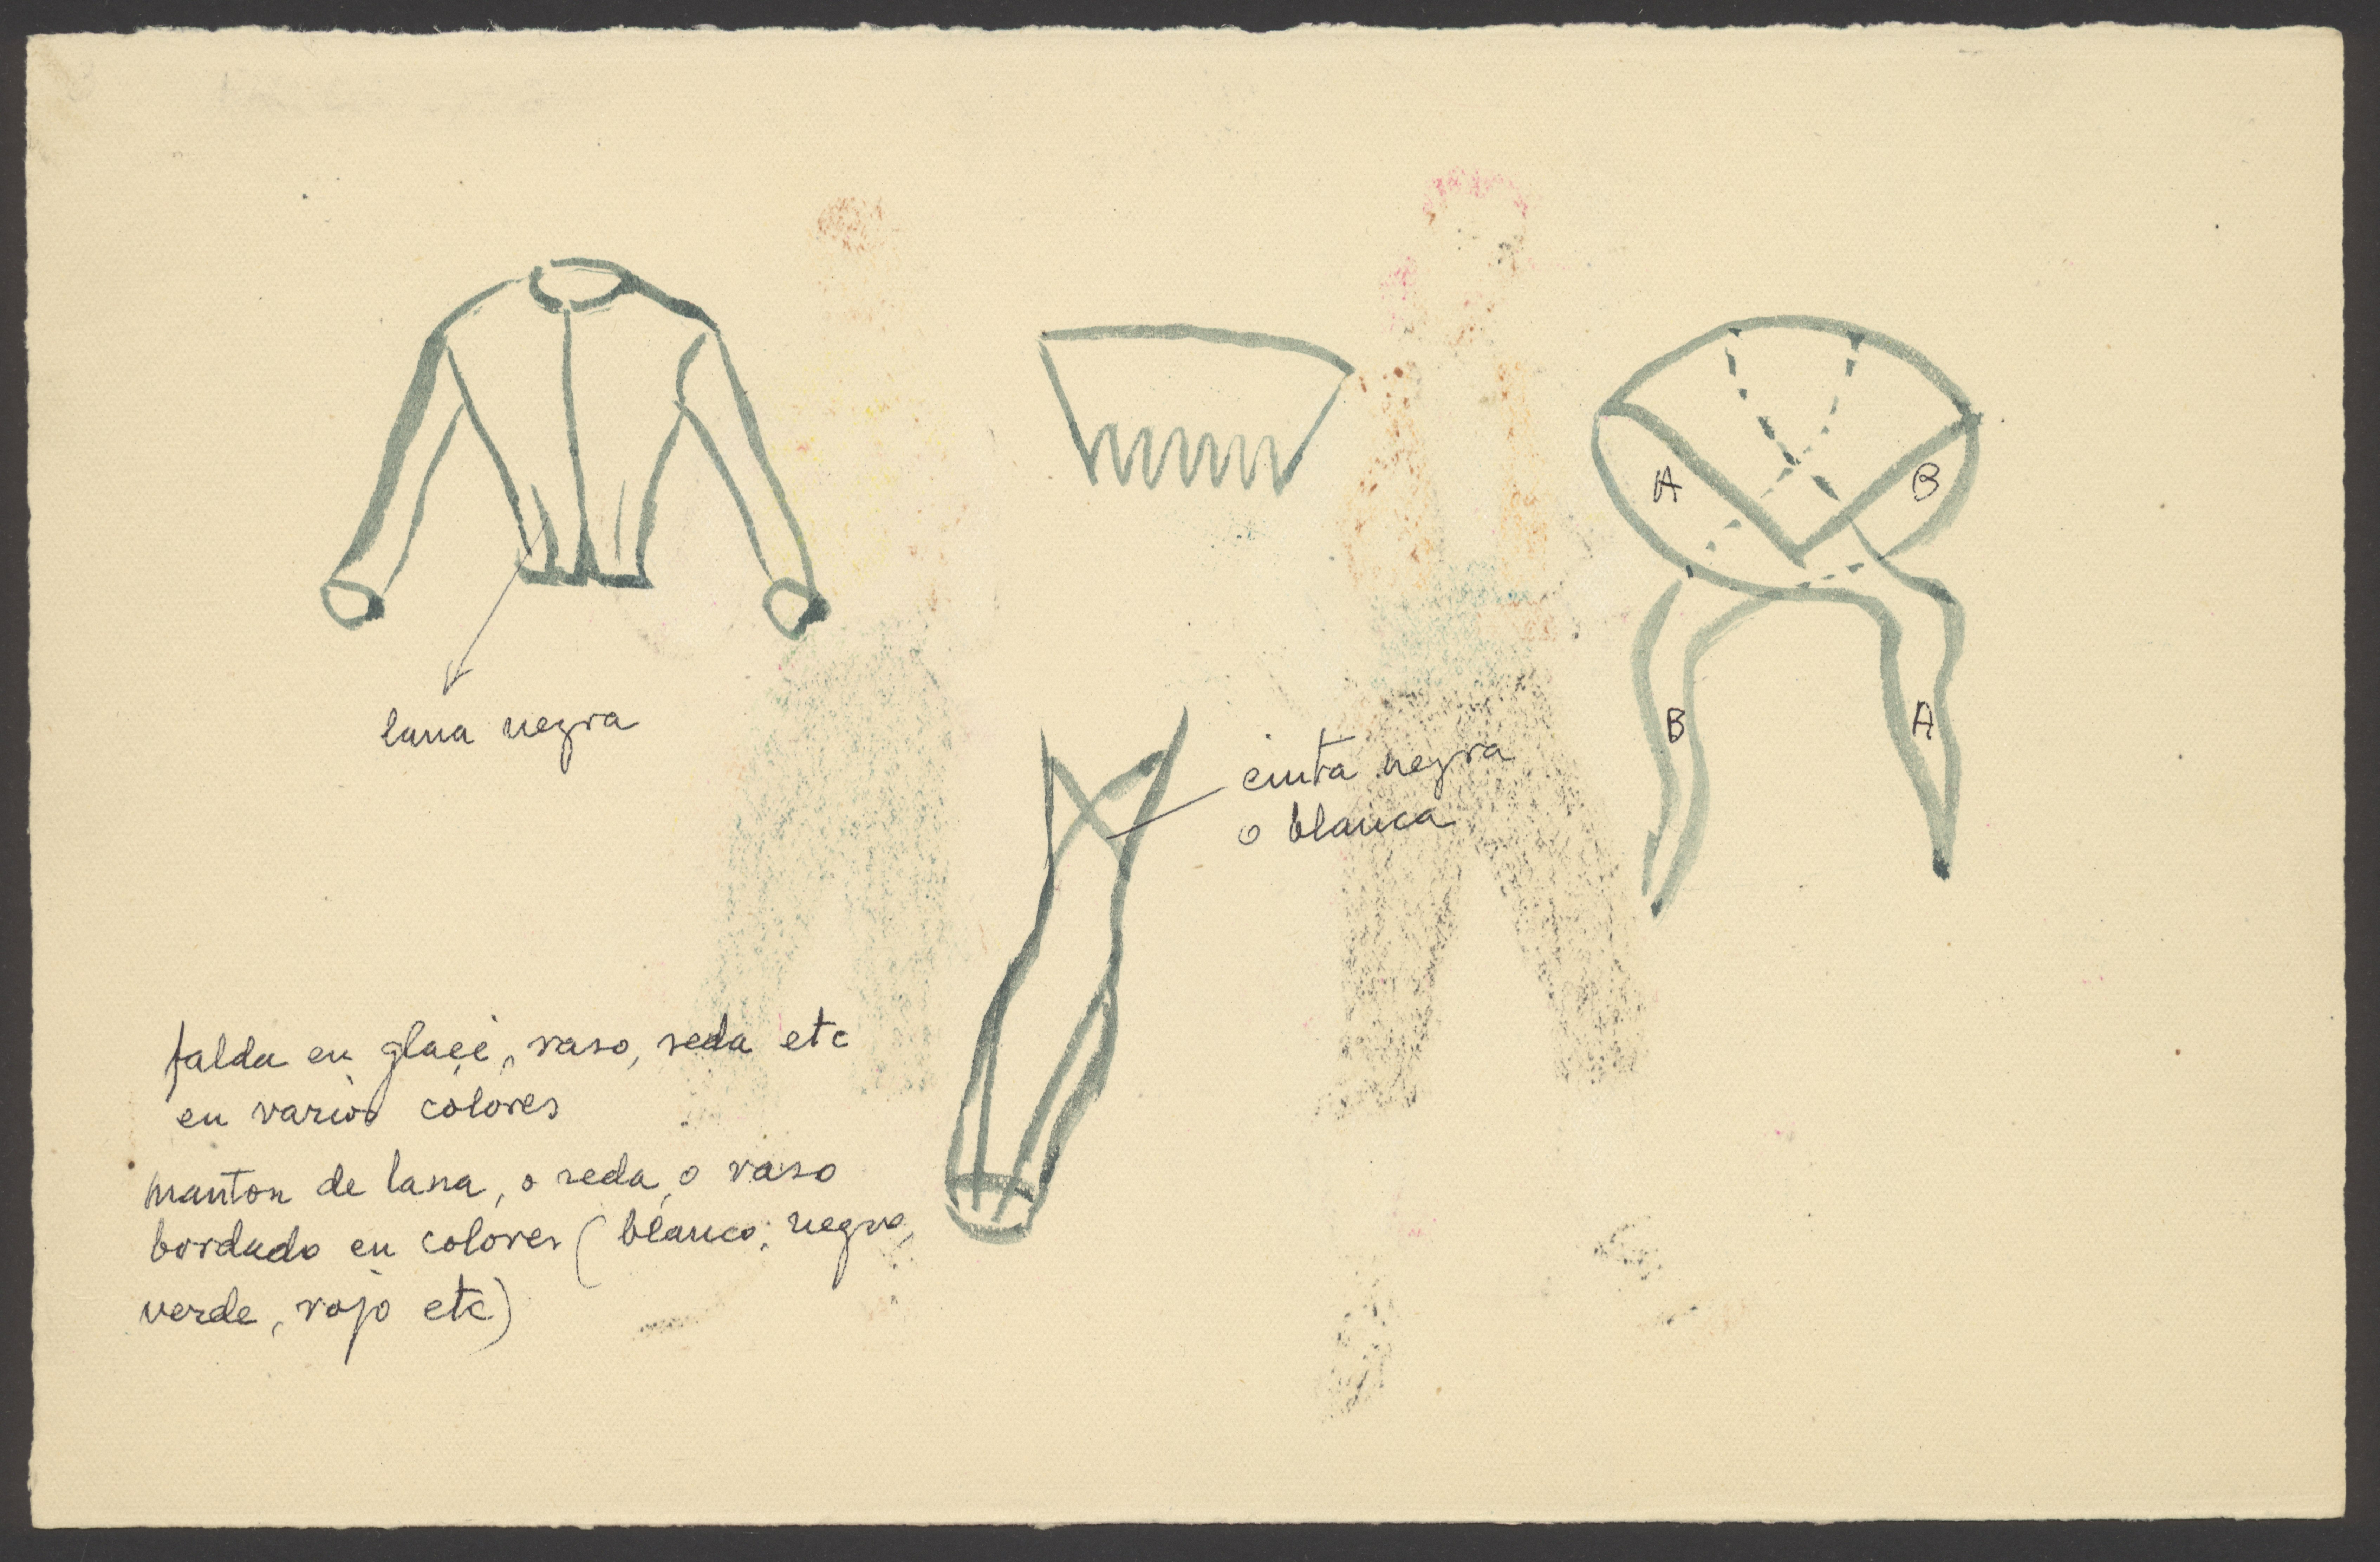 lana negra
A
B
B
A
cinta negra
o blanca
falda en glacé, raso, seda etc
en varios colores
manton de lana, o seda, o raso
bordado en colores (blanco, negro,
verde, rojo etc)